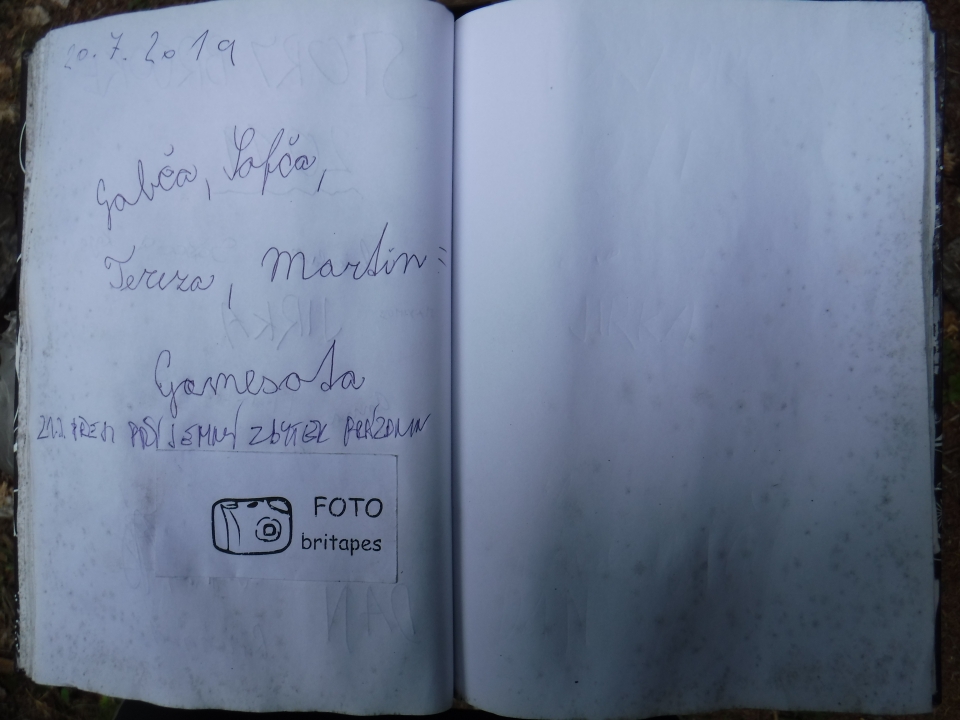 20. 7. 2019
Gabča, Sofča,
Tereza, Martin :
Gamesota
PŘEJI PŘÍJEMNÝ ZBYTEK PRÁZDNIN
FOTO
britapes